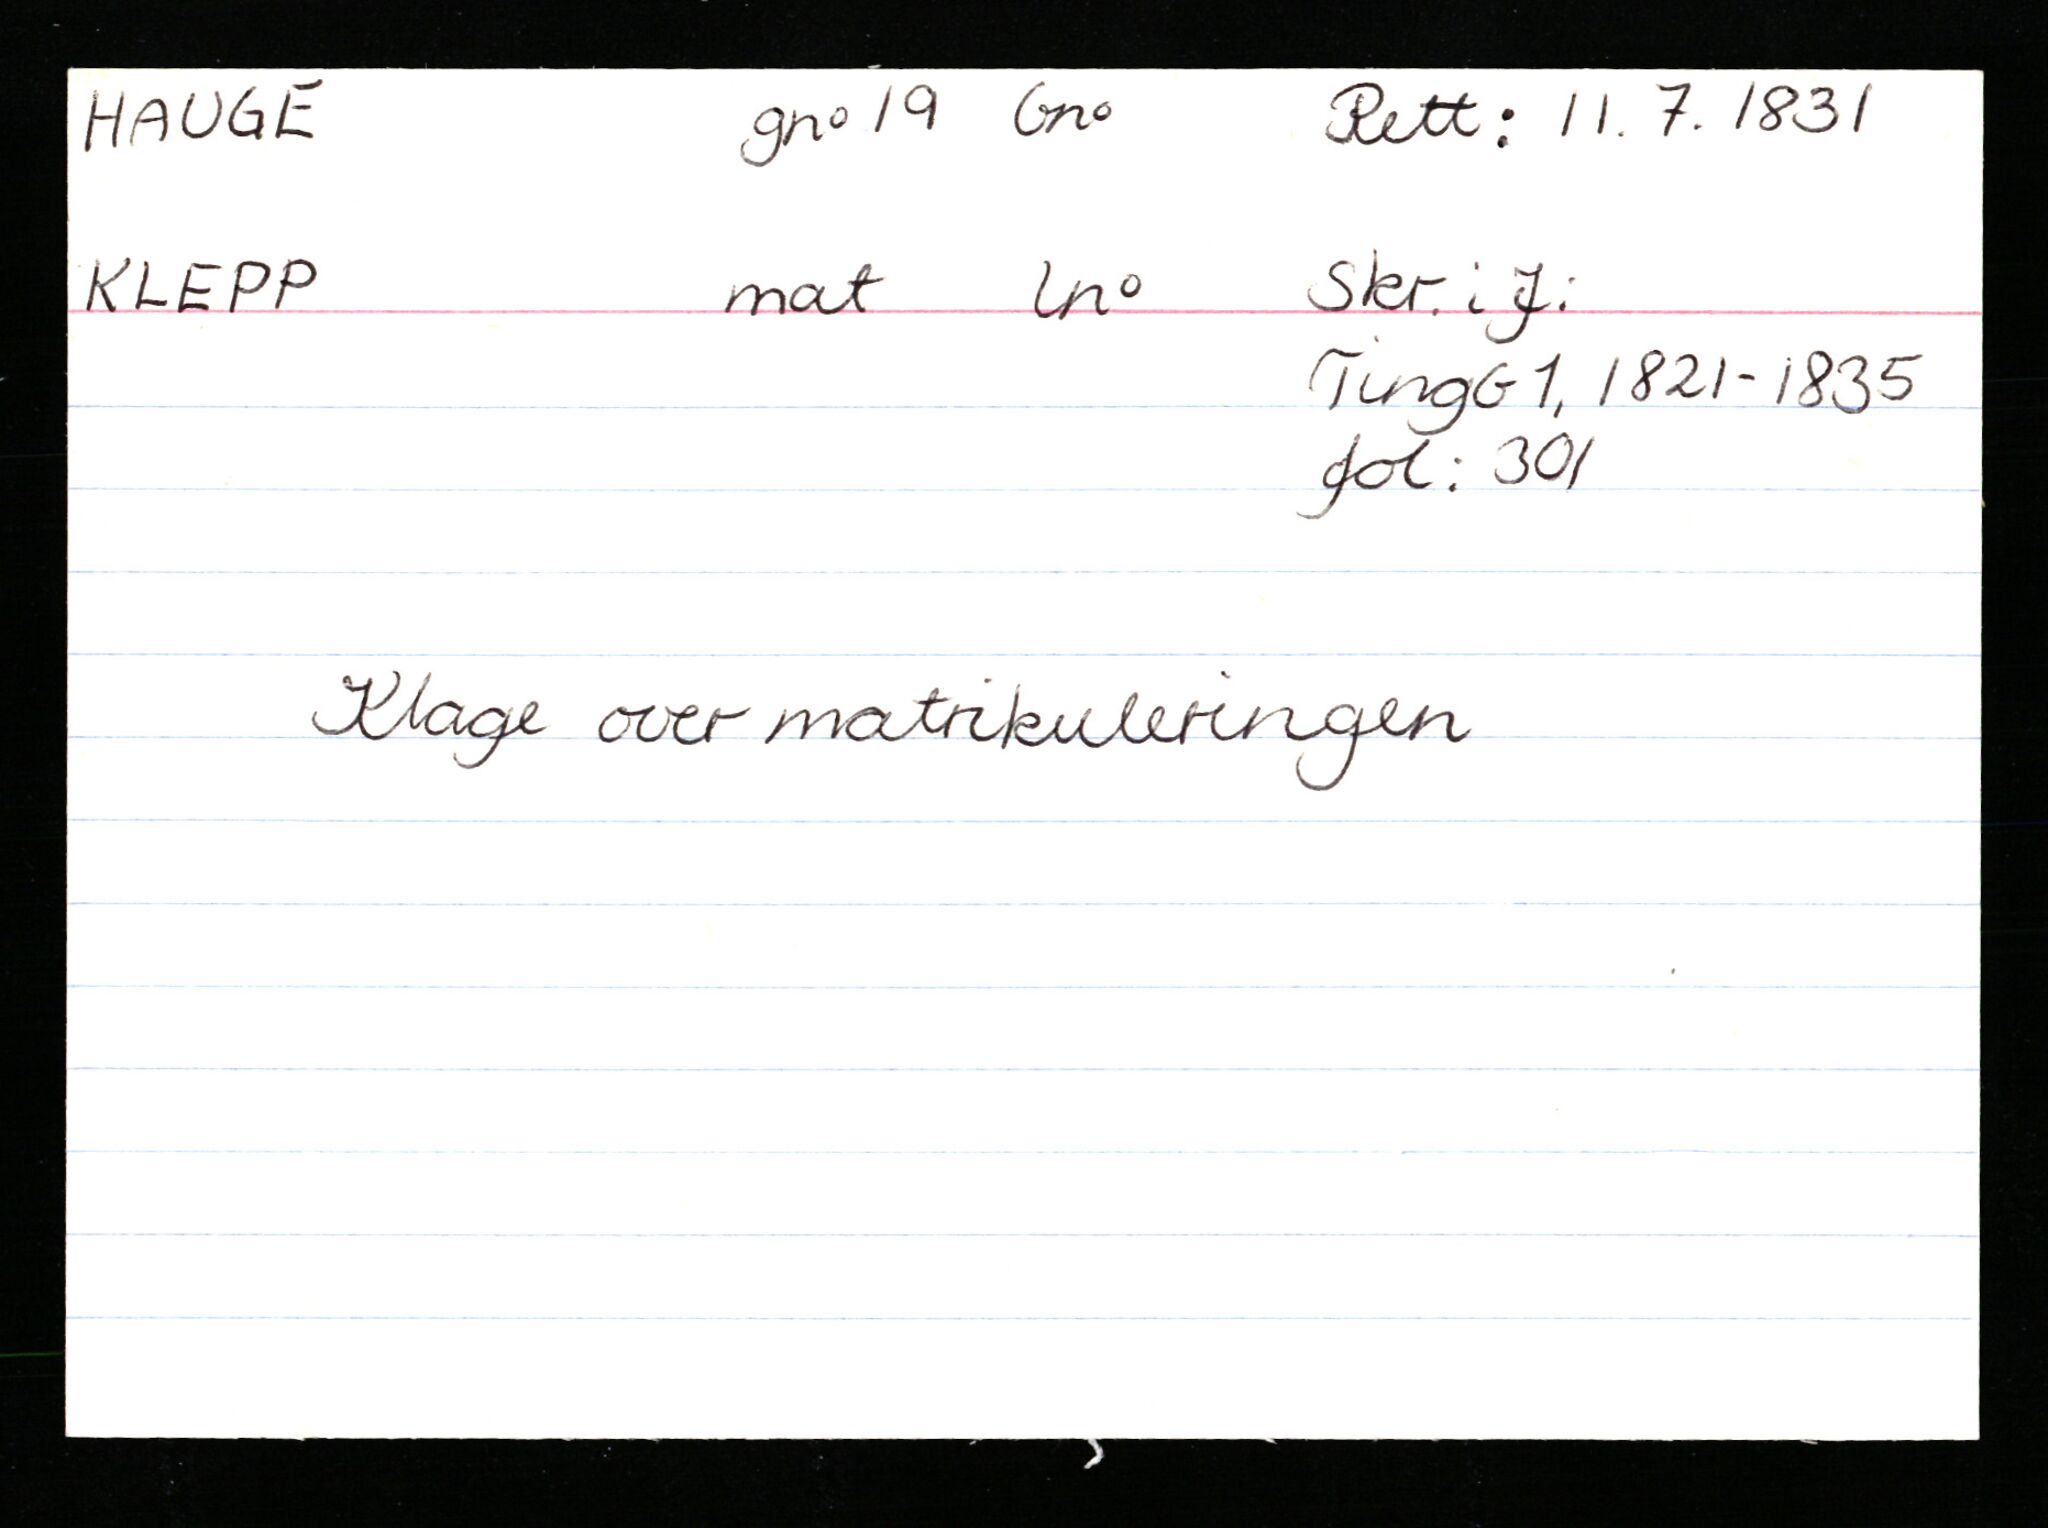 HAUGE gno 19 bno Rett: 11.7.1831
KLEPP mat lno Skr. i J:
Tingb 1, 1821-1835
fol: 301
Klage over matrikuleringen